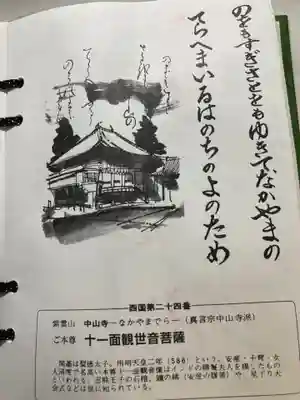 のをもすぎさとをもゆきてなかやまの
てらへまいるはのちのよのため
西国第二十四番
紫雲山 中山寺—なかやまでら—(真言宗中山寺派)
ご本尊 十一面観世音菩薩
開基は聖徳太子。用明天皇二年(586)という。安産・子育・女
人済度で名高い本尊十一面観音像はインドの勝鬘夫人を模したもの
といわれる。忍熊王子の石棺、鐘の緒(安産の腹帯)や、星下り大
会式などは世に知られている。